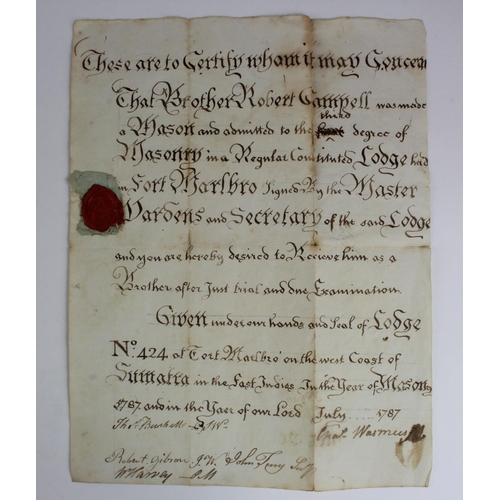 These are to Certify whom it may Concern
That Brother Robert Campell was made
third
a Mason and admitted to the degree of
Masonry in a Regular Constituted Lodge held
in Fort Marlbro Signed By the Master
Wardens and Secretary of the said Lodge
and you are hereby desired to Receive him as a
Brother after Just trial and due Examination
Given under our hands and Seal of Lodge
No. 424 at Fort Marlbro' on the west Coast of
Sumatra in the East Indies In the Year of Masony
5787 and in the Yaer of our Lord July 1787
Thos. S.W. Wasmuss M
Robert Gibson J.W. John Secty
W Harvey P.M